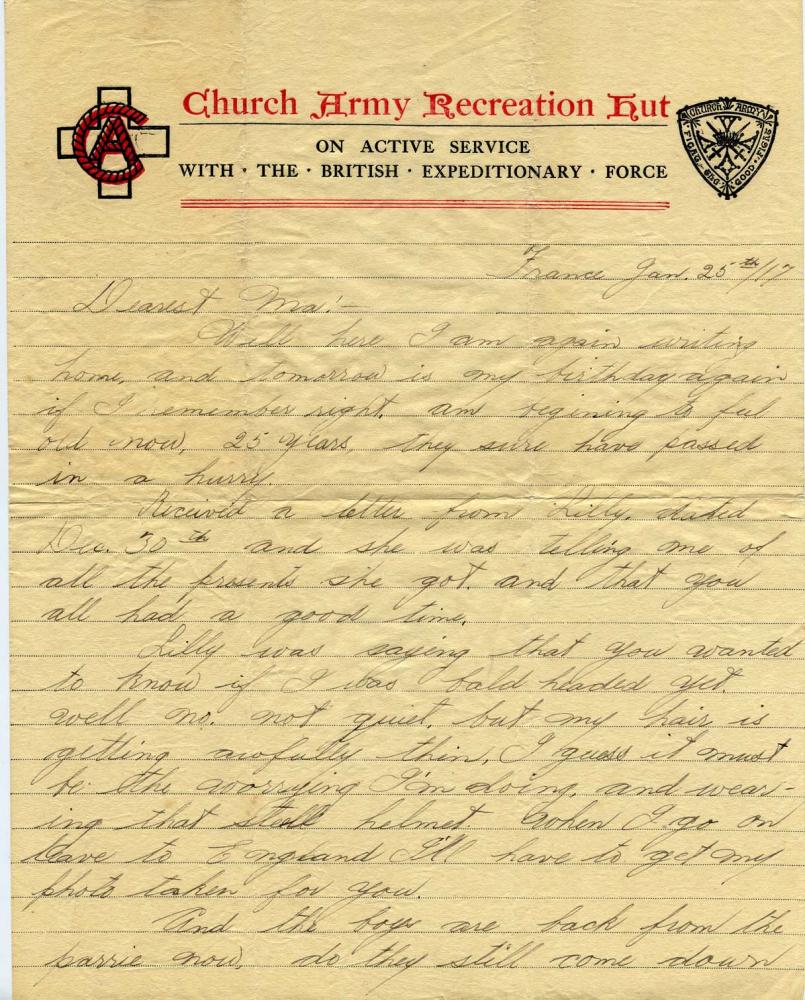 Church Army Recreation Hut
CA
CHURCH ARMY
FIGHT THE GOOD FIGHT
ON ACTIVE SERVICE
WITH · THE · BRITISH · EXPEDITIONARY · FORCE
France Jan. 25th/17
Dearest Ma:-
Well here I am again writing
home, and tomorrow is my birthday again
if I remember right. am begining to feel
old now, 25 years, they sure have passed
in a hurry.
Received a letter from Lilly, dated
Dec. 30th and she was telling me of
all the presents she got. and that you
all had a good time.
Lilly was saying that you wanted
to know if I was bald headed yet.
well no. not quiet, but my hair is
getting awfully thin, I guess it must
be the worrying I'm doing, and wear-
ing that steel helmet when I go on
leave to England I'll have to get my
photo taken for you.
And the boys are back from the
parrie now, do they still come down